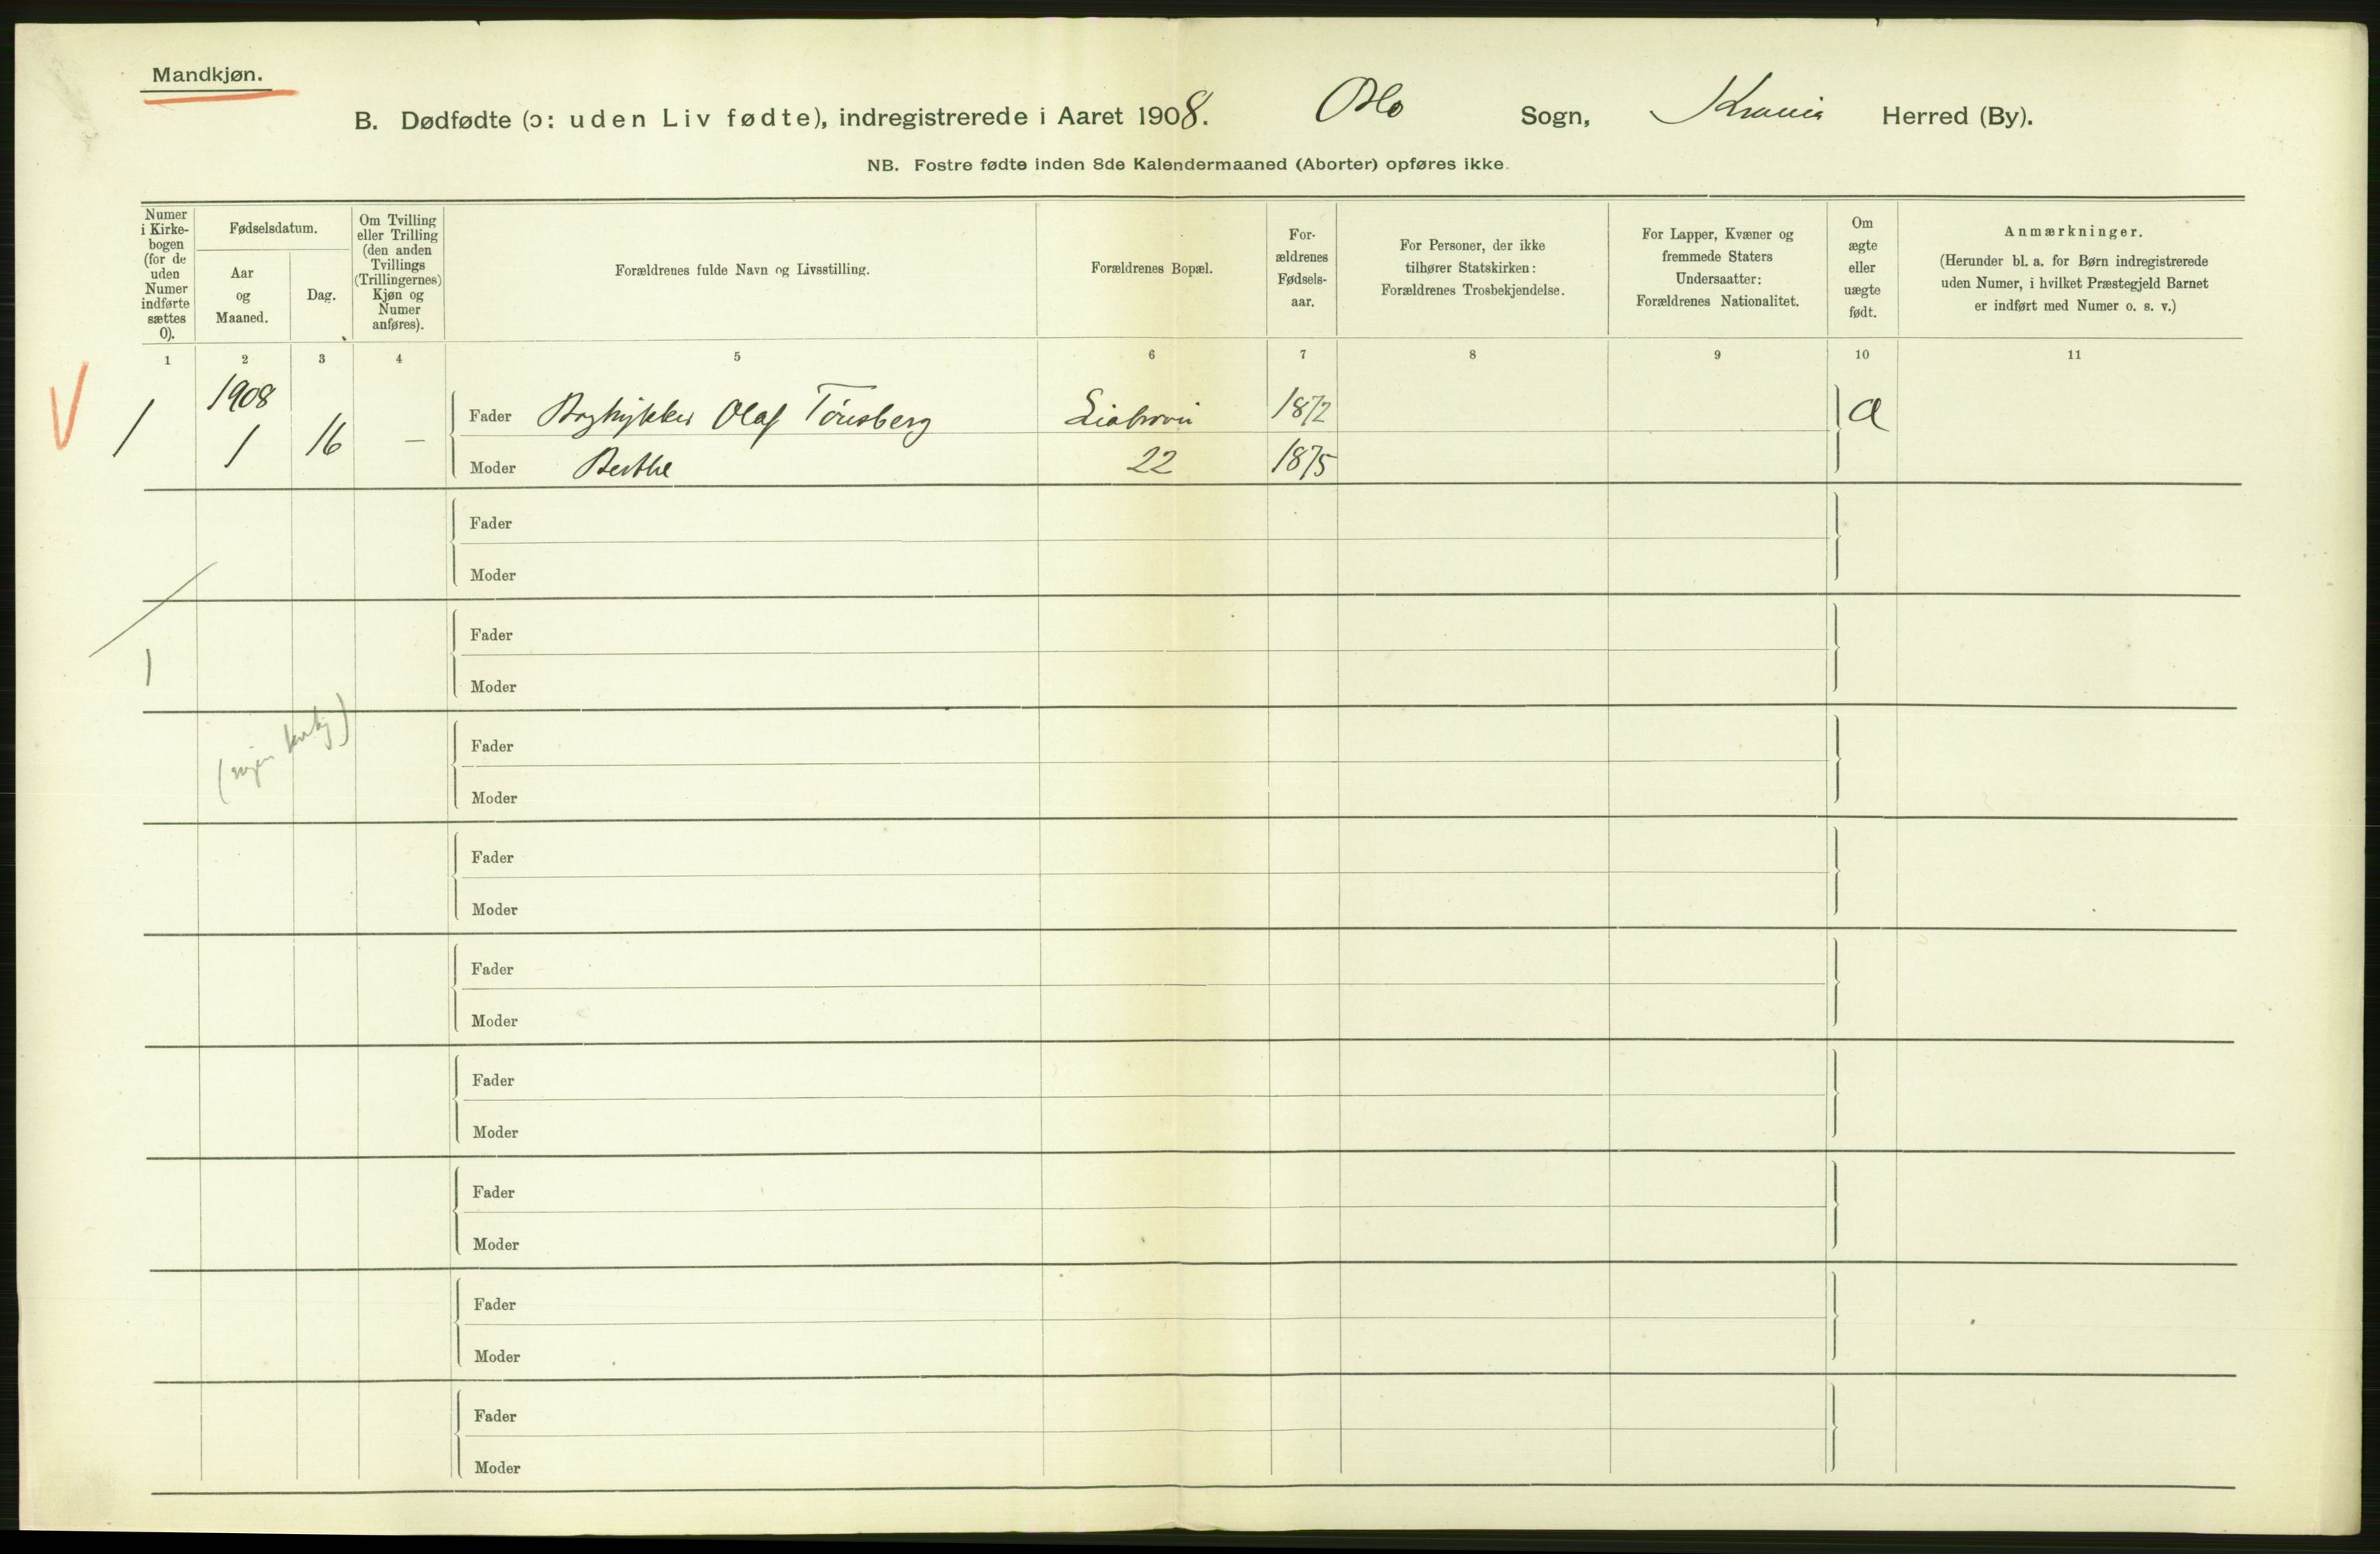 Mandkjøn.
B. Dødfødte (ɔ: uden Liv fødte), indregistrerede i Aaret 1908. Oslo Sogn, Krania Herred (By).
NB. Fostre fødte inden 8de Kalendermaaned (Aborter) opføres ikke.
Numer
i Kirke-
bogen
(for de
uden
Numer
indførte
sættes
0).
Fødselsdatum.
Aar
og
Maaned.
Dag.
Om Tvilling
eller Trilling
(den anden
Tvillings
(Trillingernes)
Kjøn og
Numer
anføres).
Forældrenes fulde Navn og Livsstilling.
Forældrenes Bopæl.
For-
ældrenes
Fødsels-
aar.
For Personer, der ikke
tilhører Statskirken:
Forældrenes Trosbekjendelse.
For Lapper, Kvæner og
fremmede Staters
Undersaatter:
Forældrenes Nationalitet.
Om
ægte
eller
uægte
født.
Anmærkninger.
(Herunder bl. a. for Børn indregistrerede
uden Numer, i hvilket Præstegjeld Barnet
er indført med Numer o. s. v.)
1 2 3 4 5 6 7 8 9 10 11
1908
Fader Bogtrykker Olaf Tönsberg Liabrovei 1872 a
1 1 16 —
Moder Berthe 22 1875
Fader
Moder
Fader
1
Moder
Fader
Moder
Fader
Moder
Fader
Moder
Fader
Moder
Fader
Moder
Fader
Moder
Fader
Moder